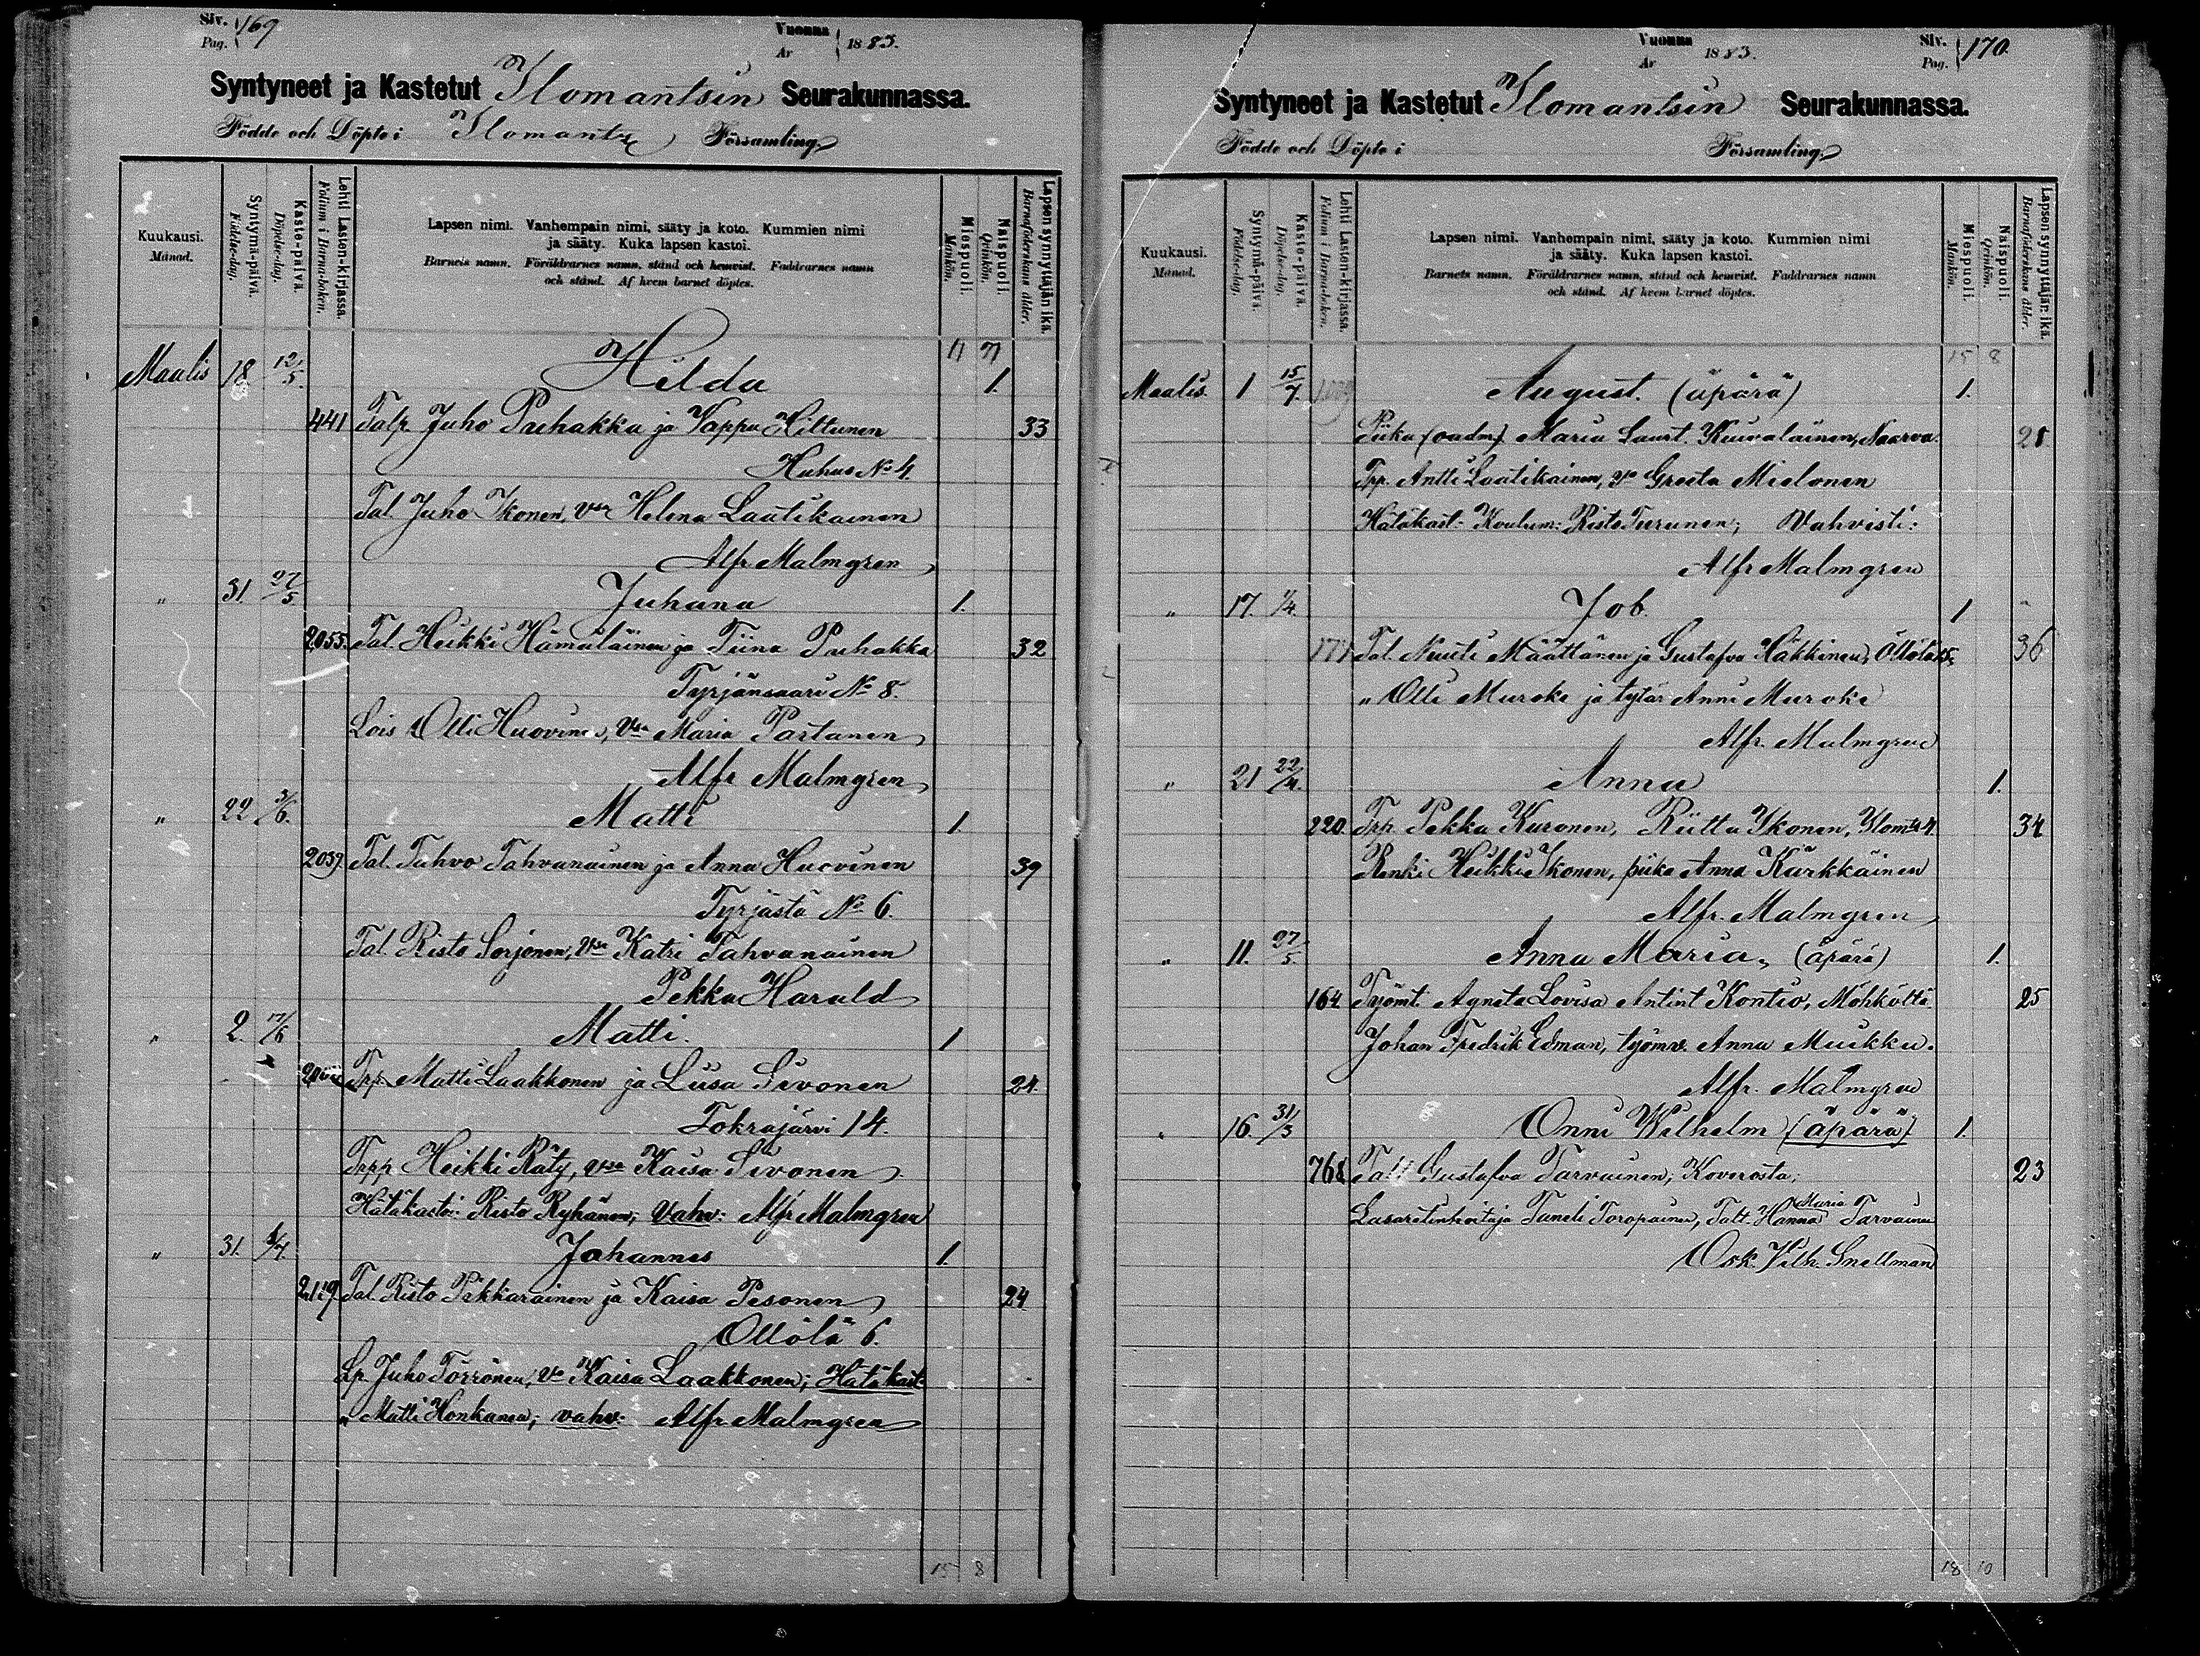 Siv. Pag. 169
Vuonna År 1883.
Syntyneet ja Kastetut Ilomantsin Seurakunnassa.
Födde och Döpte i Ilomants Församling
Kuukausi. Månad.
Syntymä-päivä. Födelse-dag.
Kaste-päivä. Döpelse-dag.
Lehti Lasten-kirjassa. Folium i Barna-boken.
Lapsen nimi. Vanhempain nimi, sääty ja koto. Kummien nimi
ja sääty. Kuka lapsen kastoi.
Barnets namn. Föräldrarnes namn, stånd och hemvist. Faddrarnes namn
och stånd. Af hvem barnet döptes.
Miespuoli. Mankön.
Naispuoli. Qvinkön.
Lapsen synnyttäjän ikä. Barnaföderskans ålder.
11 7
Maalis 18 12/5. Hilda 1.
441 Talp. Juho Puhakka ja Vappu Hiltunen 33
Huhus No 4.
Tal. Juho Ikonen, vsa Helena Laatikainen
Alfr Malmgren
" 31. 27/5 Juhana 1.
2055. Tal. Heikki Hämäläinen ja Tiina Puhakka 32
Tyrjänsaari No 8.
Lois Olli Huovinen, vsa Maria Partanen
Alfr Malmgren
" 22 3/6. Matti 1
2037. Tal. Tahvo Tahvanainen ja Anna Huovinen 39
Tyrjästä No 6.
Tal. Risto Sorjonen, vsa Katri Tahvanainen
Pekka Harald
" 2. 17/6 Matti. 1
Trp. Matti Laakkonen ja Liisa Sivonen 24.
Tokrajärvi 14.
Trpp Heikki Räty, vsa Kaisa Sivonen
Hätäkastoi: Risto Ryhänen; Vahv: Alfr Malmgren
" 31. 1/7. Johannes 1.
2119 Tal. Risto Pikkarainen ja Kaisa Pesonen 24
Ollölä 6.
Lp. Juho Törrönen, vo Kaisa Laakkonen; Hätäkast:
" Matti Honkanen; vahv: Alfr Malmgren
15 8
Vuonna År 1883.
Siv. Pag. 170.
Syntyneet ja Kastetut Ilomantsin Seurakunnassa.
Födde och Döpte i Församling
Kuukausi. Månad.
Syntymä-päivä. Födelse-dag.
Kaste-päivä. Döpelse-dag.
Lehti Lasten-kirjassa. Folium i Barna-boken.
Lapsen nimi. Vanhempain nimi, sääty ja koto. Kummien nimi
ja sääty. Kuka lapsen kastoi.
Barnets namn. Föräldrarnes namn, stånd och hemvist. Faddrarnes namn
och stånd. Af hvem barnet döptes.
Miespuoli. Mankön.
Naispuoli. Qvinkön.
Lapsen synnyttäjän ikä. Barnaföderskans ålder.
15 8
Maalis. 1 15/7. August. (äpärä) 1.
Piika (oadm) Maria Laurt. Kuivalainen, Naarva. 21
Trp. Antti Laatikainen, vo Greeta Mielonen
Hätäkast: Koulum: Risto Turunen; Vahvisti:
Alfr Malmgren
" 17. 1/4. Job. 1
177 Tal. Nuuti Määttänen ja Gustafva Häkkinen, Ollölä 15. 36
" Olli Muroke ja tytär Anni Muroke
Alfr. Malmgren
" 21 22/4. Anna 1.
220. Trp. Pekka Kuronen, Riitta Ikonen, Ilomts 4. 34
Renki Heikki Ikonen, piika Anna Kärkkäinen
Alfr. Malmgren
" 11. 27/5. Anna Maria. (äpärä) 1.
164. Työmt. Agneta Lovisa Antint Kontio, Möhköltä. 25
Johan Fredrik Edman, työmv. Anna Muikku.
Alfr. Malmgren
" 16. 31/3 Onni Wilhelm (äpärä). 1.
768 Talt Gustafva Tarvainen, Koverosta; 23
Lasaretinhoitaja Taneli Toropainen, Talt. Hanna Maria Tarvainen
Osk. Vilh. Snellman
18 10